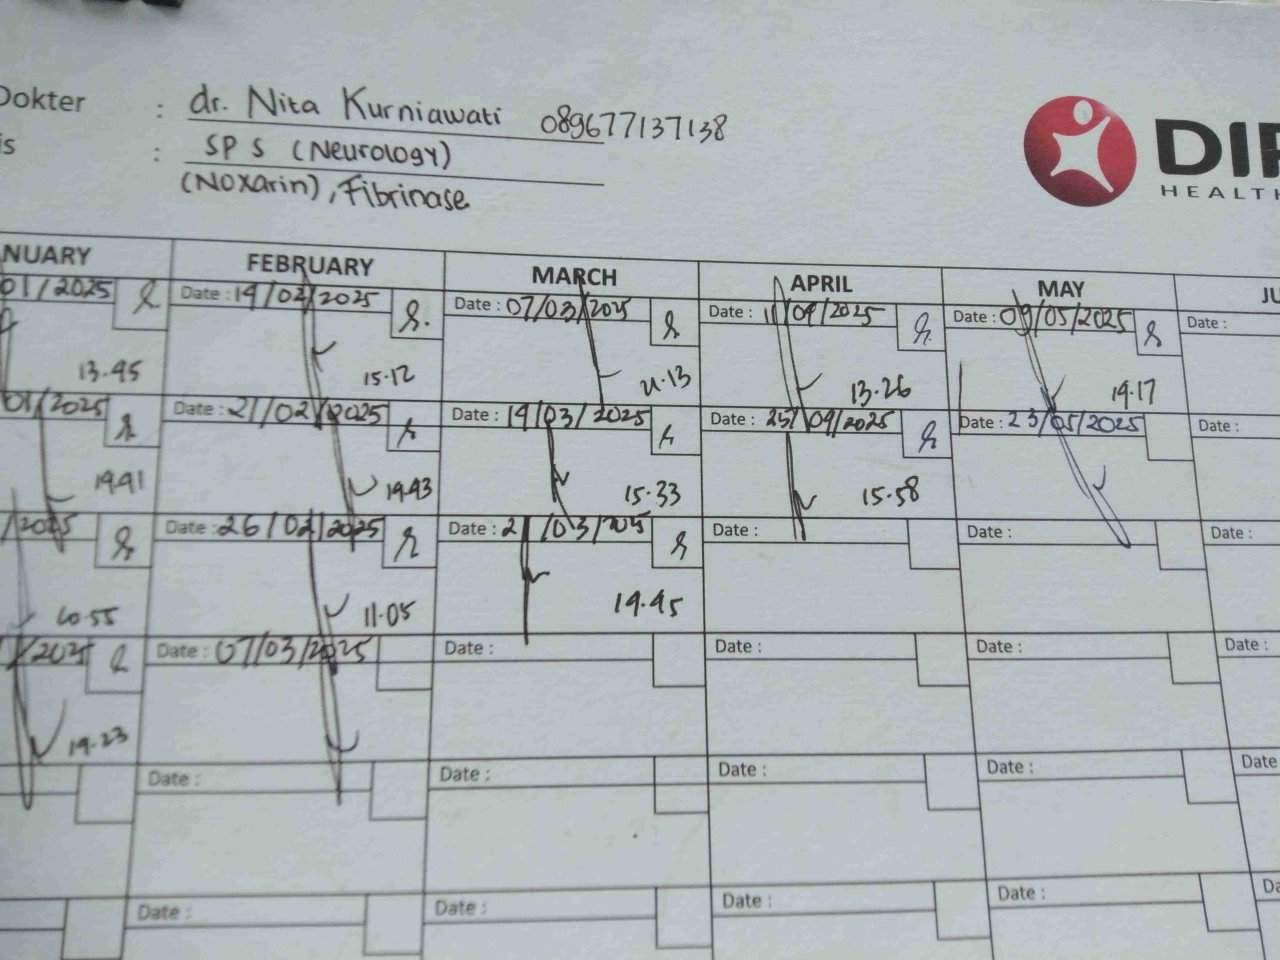 Dokter : dr. Nita Kurniawati 089677137138
is : SP S (Neurology)
(Noxarin), Fibrinase
DIP
HEALTH
NUARY FEBRUARY MARCH APRIL MAY JU
01/2025 Date : 14/02/2025 Date : 07/03/2025 Date : 11/04/2025 Date : 09/05/2025 Date :
13.45 15.12 11.13 13.26 14.17
01/2025 Date : 21/02/2025 Date : 14/03/2025 Date : 25/04/2025 Date : 23/05/2025 Date :
14.41 14.43 15.33 15.58
/2025 Date : 26/02/2025 Date : 21/03/2025 Date : Date : Date :
10.55 11.05 14.45
/2025 Date : 07/03/2025 Date : Date : Date : Date :
14.23
Date : Date : Date : Date : Date
Date : Date : Date : Date : Da